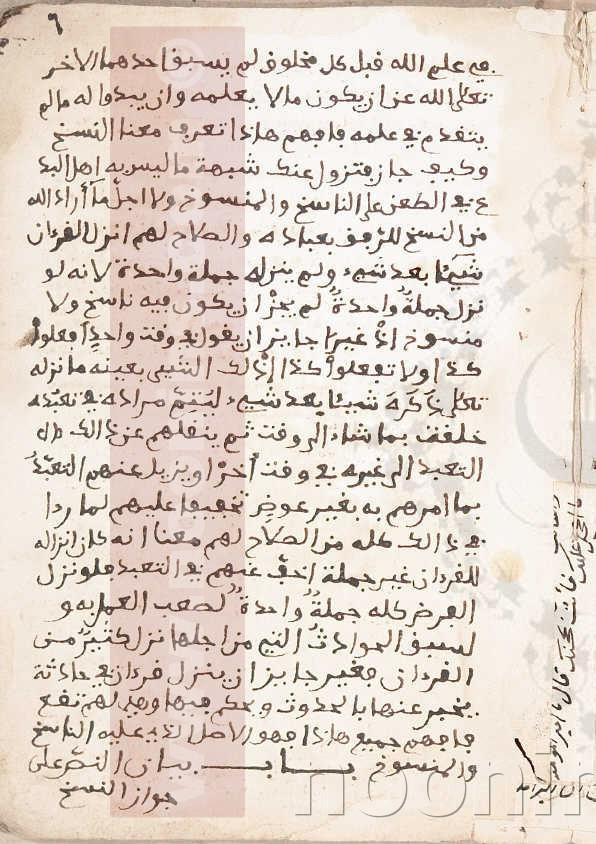 ٦
في علم الله قبل كل مخلوق لم يسبق احدهما الاخر
تعلى الله عن ان يكون ما لا يعلمه وان يبدوا له ما لم
يتقدم في علمه فافهم هاذا تعرف معنا النسخ
وكيف جاز فتزول عنك شبهة ما ليس به اهل البد
ع في الطعن على الناسخ والمنسوخ ولاجل ما أراد الله
من النسخ للرفق بعباده والصلاح لهم انزل القرءان
شيئا بعد شيء ولم ينزله جملة واحدة لانه لو
نزل جملة واحدة لم يجز ان يكون فيه ناسخ ولا
منسوخ اذ غير جايز ان يقول في وقت واحد افعلوا
كذا ولا تفعلوا كذا لذلك الشيء بعينه فانزله
تعلى ذكره شيئا بعد شيء ليتم مراده في تعبده
خلقه بما شاء الى وقت ثم ينقلهم عن ذالك
التعبد الى غيره في وقت اخر او يزيل عنهم التعبد
بما امرهم به بغير عوض تخفيفا عليهم لما ردا
في ذالك كله من الصلاح لهم معنا انه كان انزاله
للقرءان غير جملة اخف عنهم في التعبد فلو نزل
الفرض كله جملة واحدة لصعب العمل به و
لسبق الحوادث التي من اجلها نزل كثير من
القرءان فغير جايز ان ينزل قرءان في حادثة
يخبر عنها بالحدوث ويحكم فيها وهي لم تقع
فافهم جميع هاذا فهو الاصل الذي عليه الناسخ
والمنسوخ بــاب بيان النص على
جواز النسخ
noonh